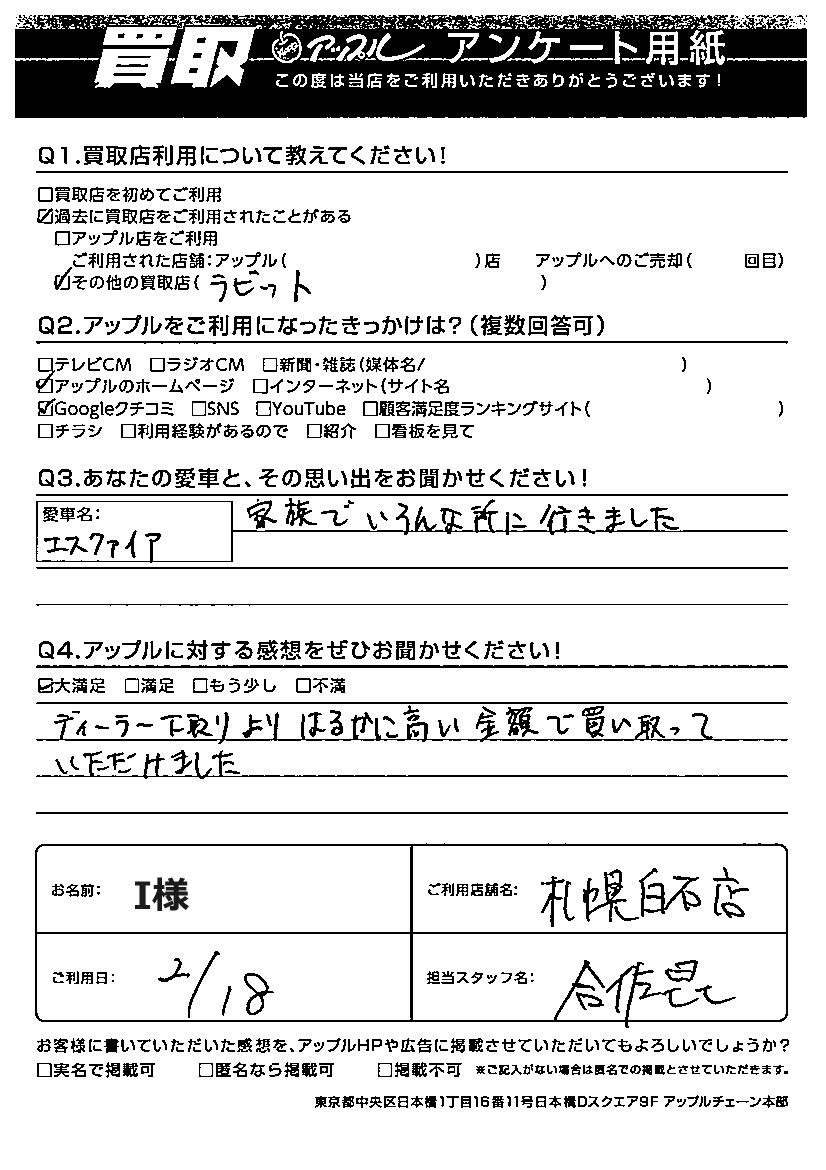 買取 アップル アンケート用紙
この度は当店をご利用いただきありがとうございます!
Q1.買取店利用について教えてください!
□買取店を初めてご利用
☑過去に買取店をご利用されたことがある
□アップル店をご利用
ご利用された店舗:アップル( )店 アップルへのご売却( 回目)
☑その他の買取店( ラビット )
Q2.アップルをご利用になったきっかけは?(複数回答可)
□テレビCM □ラジオCM □新聞・雑誌(媒体名/ )
☑アップルのホームページ □インターネット(サイト名 )
☑Googleクチコミ □SNS □YouTube □顧客満足度ランキングサイト( )
□チラシ □利用経験があるので □紹介 □看板を見て
Q3.あなたの愛車と、その思い出をお聞かせください!
愛車名: 家族でいろんな所に行きました
エスクァイア
Q4.アップルに対する感想をぜひお聞かせください!
☑大満足 □満足 □もう少し □不満
ディーラー下取りよりはるかに高い金額で買い取って
いただけました
お名前: I様 ご利用店舗名: 札幌白石店
ご利用日: 2/18 担当スタッフ名:
お客様に書いていただいた感想を、アップルHPや広告に掲載させていただいてもよろしいでしょうか?
□実名で掲載可 □匿名なら掲載可 □掲載不可 ※ご記入がない場合は匿名での掲載とさせていただきます。
東京都中央区日本橋1丁目16番11号日本橋Dスクエア9F アップルチェーン本部